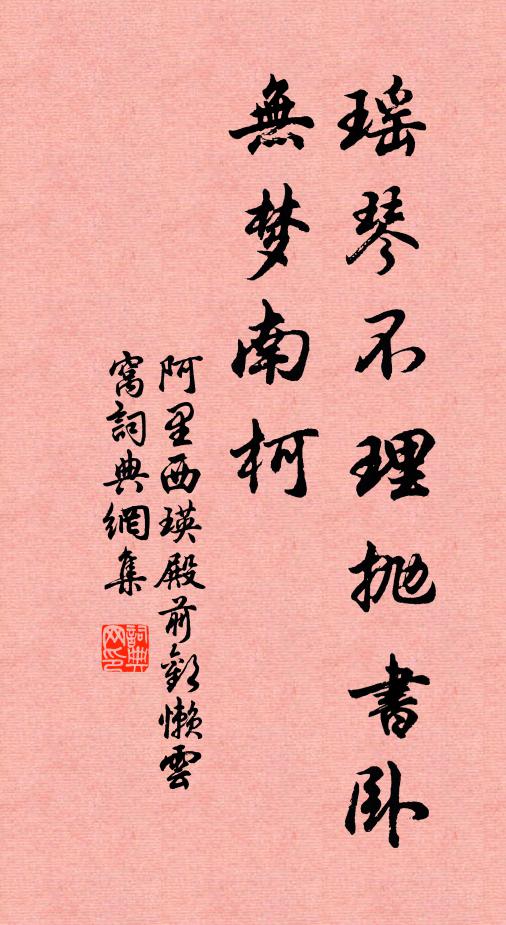 瑶琴不理抛書卧
無梦南柯
阿里西瑛殿前歡懒雲
窩詞典網集
詞典网印